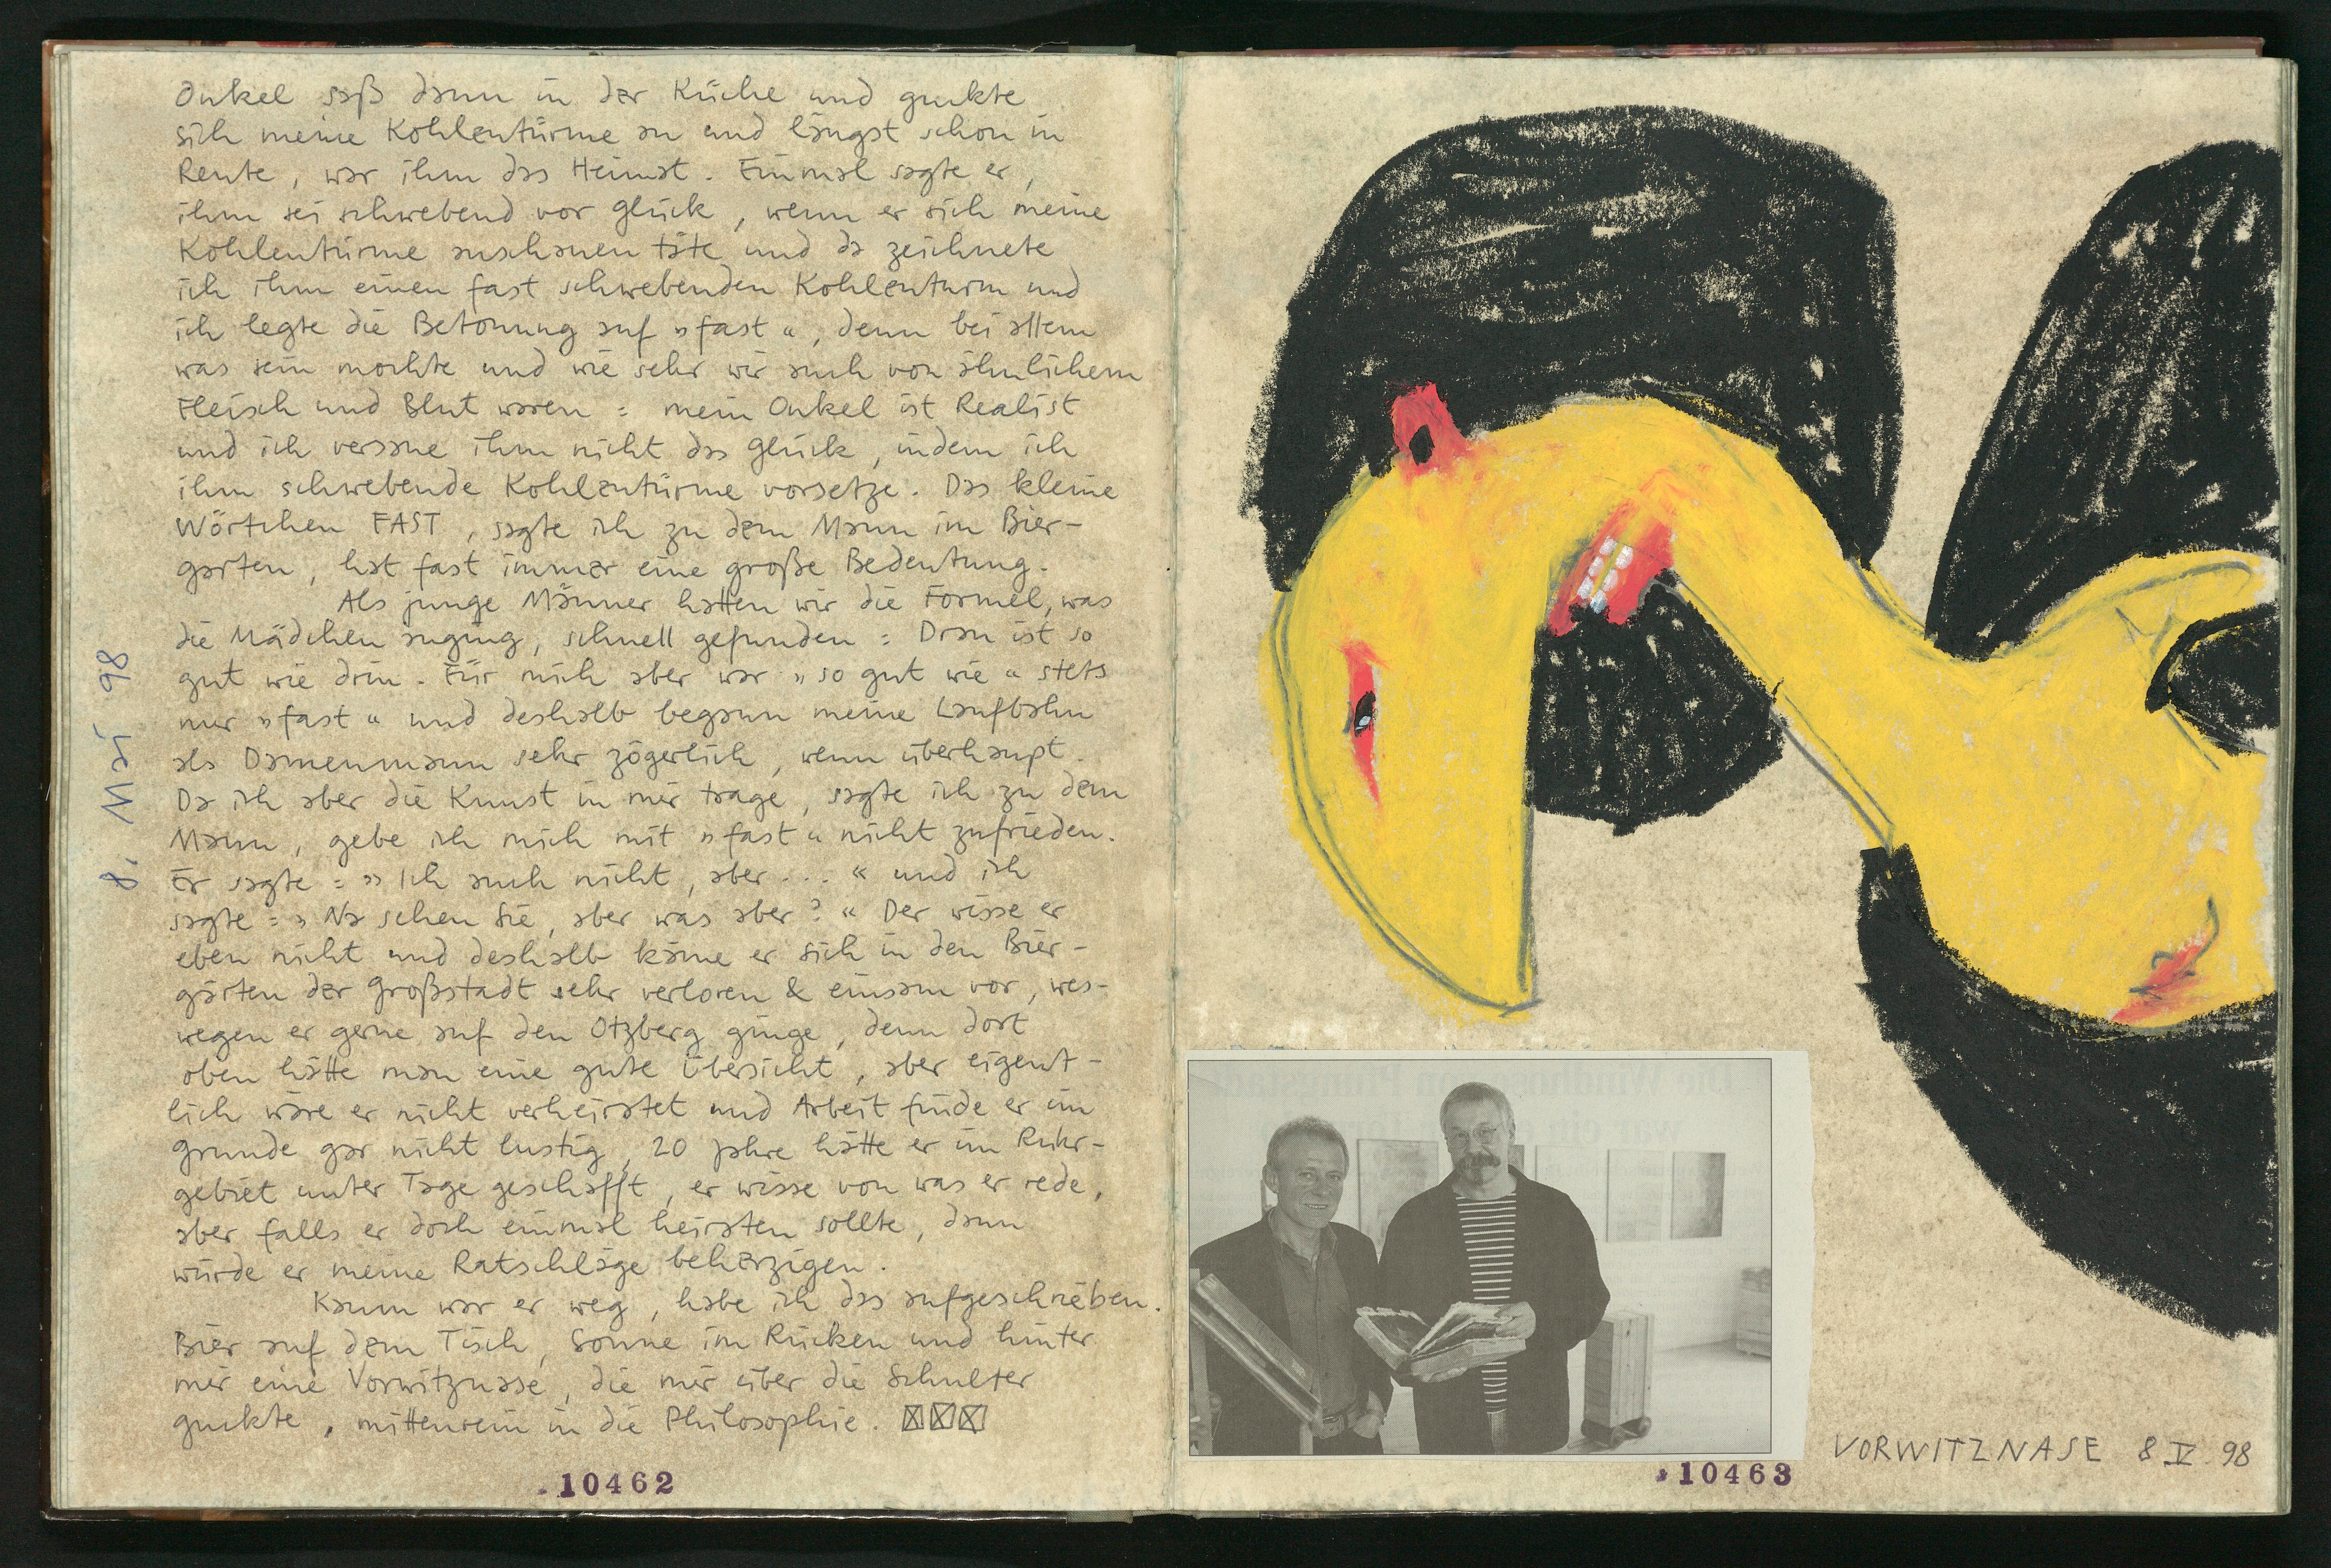 Onkel saß dann in der Küche und guckte
sich meine Kohlentürme an und längst schon in
Rente, war ihm das Heimat. Einmal sagte er,
ihm sei schwebend vor Glück, wenn er sich meine
Kohlentürme anschauen täte und da zeichnete
ich ihm einen fast schwebenden Kohlenturm und
ich legte die Betonung auf »fast«, denn bei allem
was sein mochte und wie sehr wir auch von ähnlichem
Fleisch und Blut waren: mein Onkel ist Realist
und ich versaue ihm nicht das Glück, indem ich
ihm schwebende Kohlentürme vorsetze. Das kleine
Wörtchen FAST, sagte ich zu dem Mann im Bier-
garten, hat fast immer eine große Bedeutung.
Als junge Männer hatten wir die Formel, was
die Mädchen anging, schnell gefunden: Dran ist so
gut wie drin. Für mich aber war »so gut wie« stets
nur »fast« und deshalb begann meine Laufbahn
als Damenmann sehr zögerlich, wenn überhaupt.
Da ich aber die Kunst in mir trage, sagte ich zu dem
Mann, gebe ich mich mit »fast« nicht zufrieden.
Er sagte: »Ich auch nicht, aber...« und ich
sagte: »Na sehen Sie, aber was aber?« Der wisse er
eben nicht und deshalb käme er sich in den Bier-
gärten der Großstadt sehr verloren & einsam vor, wes-
wegen er gerne auf den Otzberg ginge, denn dort
oben hätte man eine gute Übersicht, aber eigent-
lich wäre er nicht verheiratet und Arbeit finde er im
Grunde gar nicht lustig, 20 Jahre hätte er im Ruhr-
gebiet unter Tage geschafft, er wisse von was er rede,
aber falls er doch einmal heiraten sollte, dann
würde er meine Ratschläge beherzigen.
Kaum war er weg, habe ich das aufgeschrieben.
Bier auf dem Tisch, Sonne im Rücken und hinter
mir eine Vorwitznase, die mir über die Schulter
guckte, mittenrein in die Philosophie.
8. Mai 98
10462
10463
VORWITZNASE 8 V 98